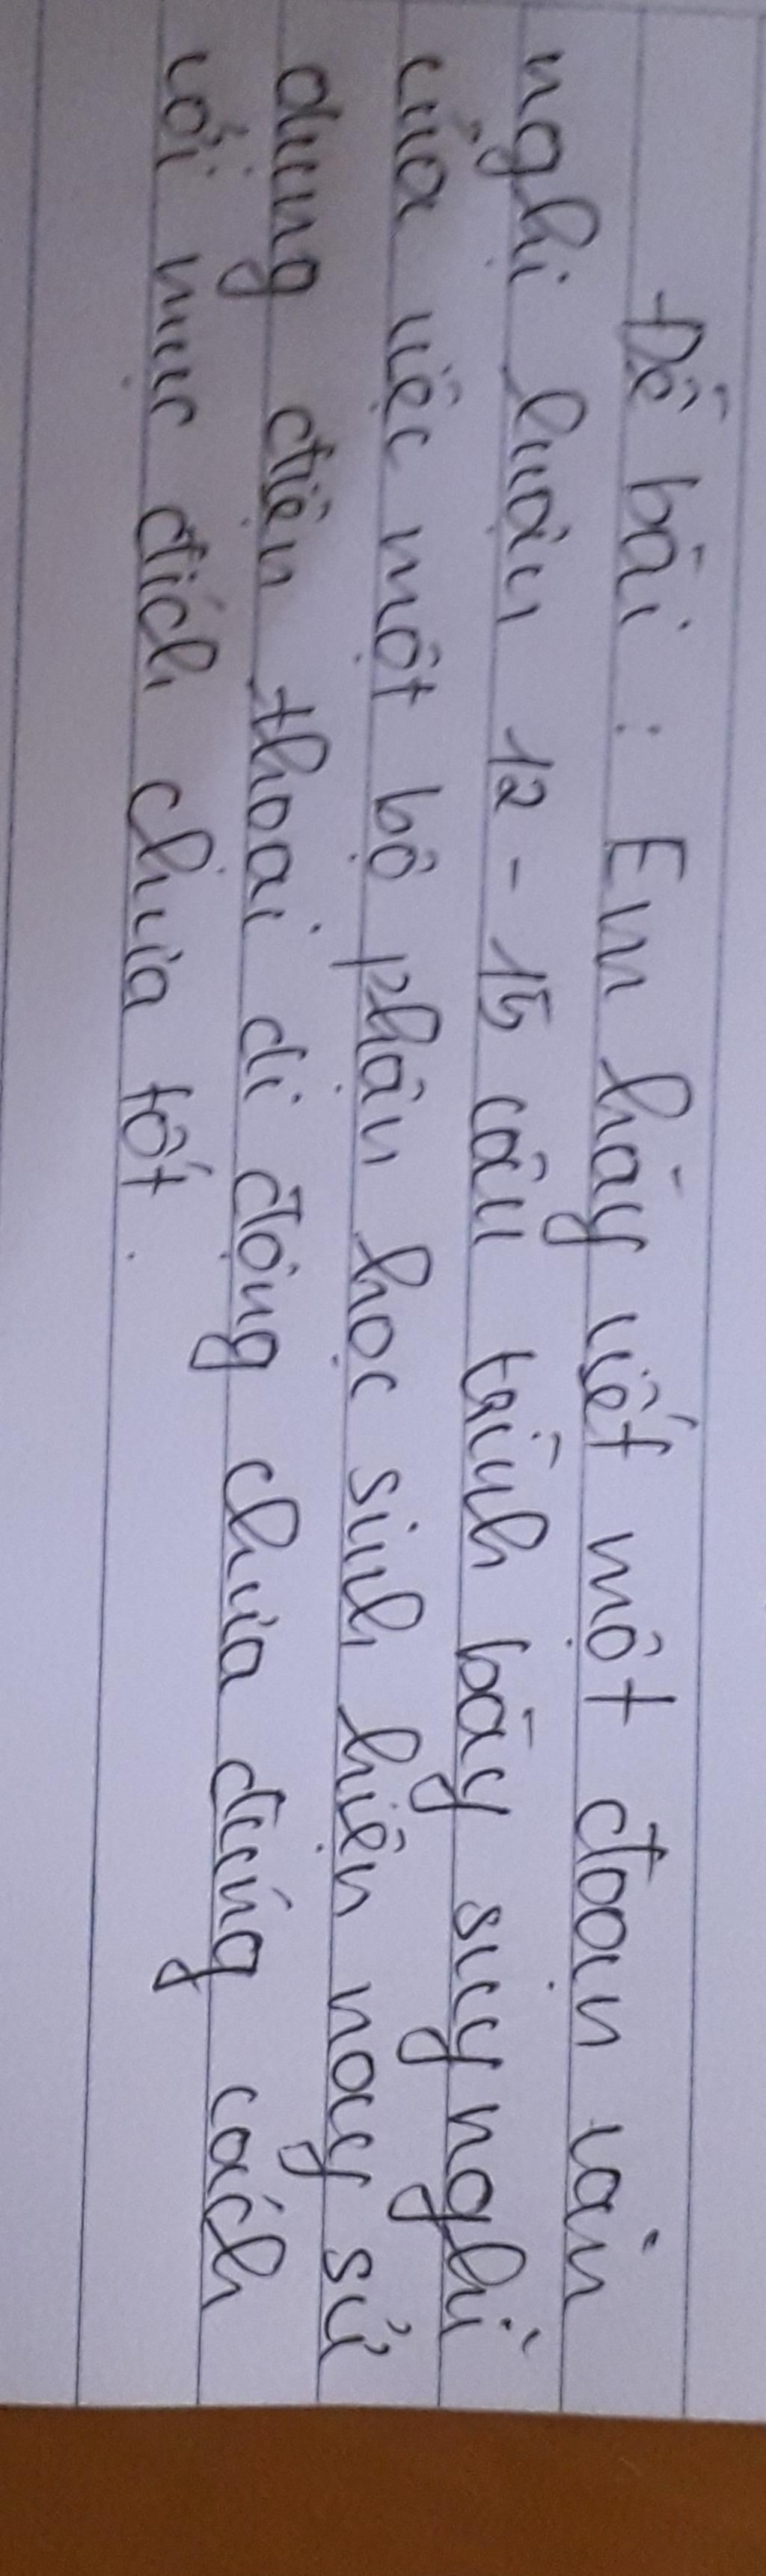 Đề bài : Em hãy viết một đoạn văn
nghị luận 12 - 15 câu trình bày suy nghĩ
của việc một bộ phận học sinh hiện nay sử
dụng điện thoại di động chưa đúng cách
với mục đích chưa tốt.